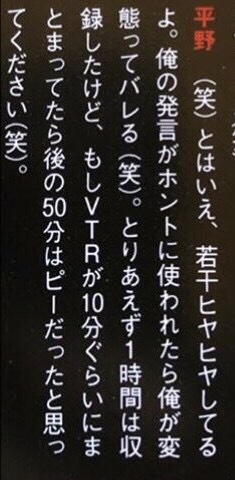 平野 (笑)とはいえ、若干ヒヤヒヤしてる
よ。俺の発言がホントに使われたら俺が変
態ってバレる(笑)。とりあえず1時間は収
録したけど、もしVTRが10分ぐらいにま
とまってたら後の50分はピーだったと思っ
てください(笑)。